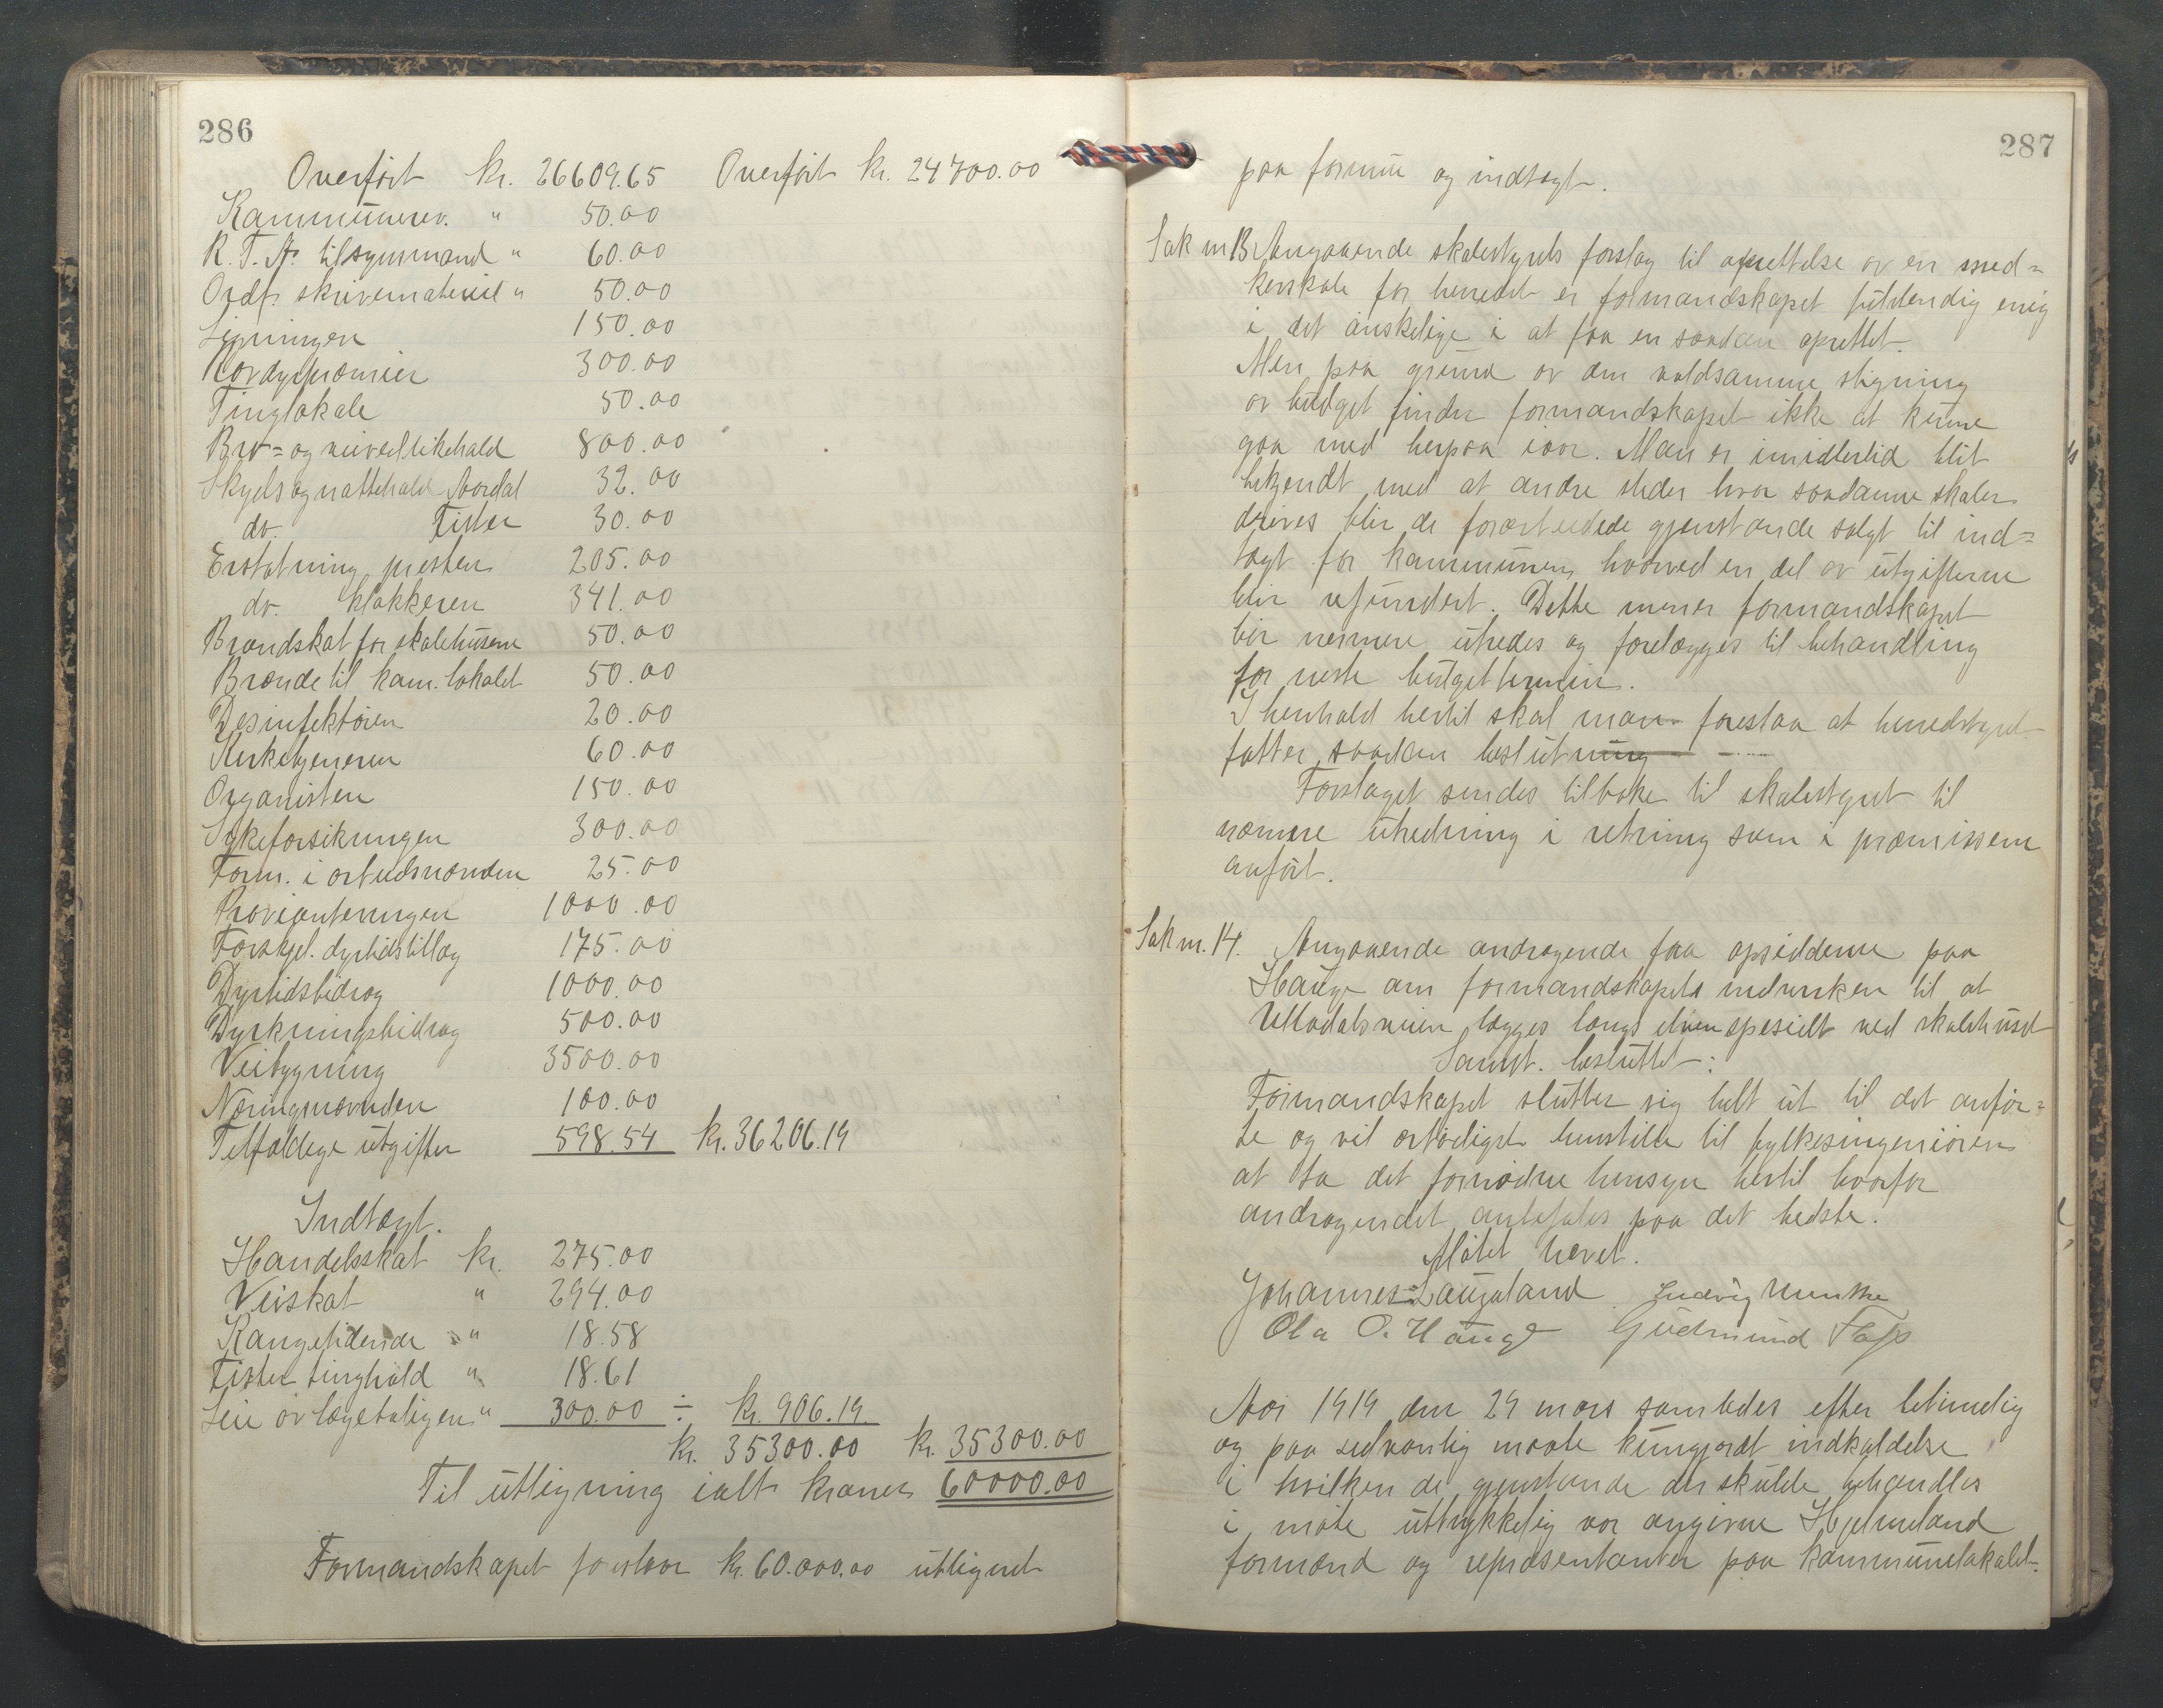 286
Overført kr. 26609.65 Overført kr. 24700.00
Kommunerev. " 50.00
R. T. A. tilsynsmand " 60.00
Ordf. skrivemateriel " 50.00
Ligningen 150.00
Rovdyrpræmier 300.00
Tinglokale 50.00
Bro= og veivedlikehold 800.00
Skyds og nattehold Aardal 32.00
do. Fister 30.00
Erstatning presten 205.00
do. klokkeren 341.00
Brandskat for skolehusene 50.00
Brænde til kom. lokalet 50.00
Desinfektøren 20.00
Kirketjeneren 60.00
Organisten 150.00
Sykeforsikringen 300.00
Form. i arbeidsnævnden 25.00
Provianteringen 1000.00
Forskjel. dyrtidstillæg 175.00
Dyrtidsbidrag 1000.00
Dyrkningsbidrag 500.00
Veibygning 3500.00
Næringsnævnden 100.00
Tilfældige utgifter 598.54 kr. 36206.19
Indtægt.
Handelsskat kr. 275.00
Veiskat " 294.00
Kongetiende " 18.58
Fister tinghold " 18.61
Leie av lægeboligen " 300.00 ÷ kr. 906.19
kr. 35300.00 kr. 35300.00
Til utligning ialt kroner 60000.00
Formandskapet forslaar kr. 60.000.00 utlignet
287
paa formue og indtægt.
Sak nr 13 Angaaende skolestyrets forslag til oprettelse av en sned=
kerskole for herredet er formandskapet fuldendig enig
i det ønskelige i at faa en saadan oprettet.
Men paa grund av den voldsomme stigning
av budget finder formandskapet ikke at kunne
gaa med herpaa iaar. Man er imidlertid blit
bekjendt med at andre steder hvor saadanne skoler
drives blir de forarbeidede gjenstande solgt til ind=
tægt for kommunen, hvorved en del av utgifterne
blir refundert. Dette mener formandskapet
bør nermere utredes og forelægges til behandling
for neste budgettermin.
I henhold hertil skal man foreslaa at herredstyret
fatter saadan beslutning
Forslaget sendes tilbake til skolestyret til
nærmere utredning i retning som i præmissene
anført.
Sak nr. 14. Angaaende andragende fra opsidderne paa
Hauge om formandskapets indvirken til at
Ulladalsveien lægges langs elven spesielt ved skolehuset
Samst. besluttet:
Formandskapet slutter sig helt ut til det anfør=
te og vil ærbødigst henstille til fylkesingeniøren
at ta det fornødne hensyn hertil hvorfor
andragendet anbefales paa det bedste.
Møtet hævet.
Johannes Laugaland Ludvig Munthe
Ola O. Hauge Gudmund
Aar 1919 den 29 mars samledes efter betimelig
og paa sedvanlig maate kungjordt indkaldelse
i hvilken de gjenstande der skulde behandles
i møte uttrykkelig var angivne Hjelmeland
formænd og repræsentanter paa kommunelokalet.